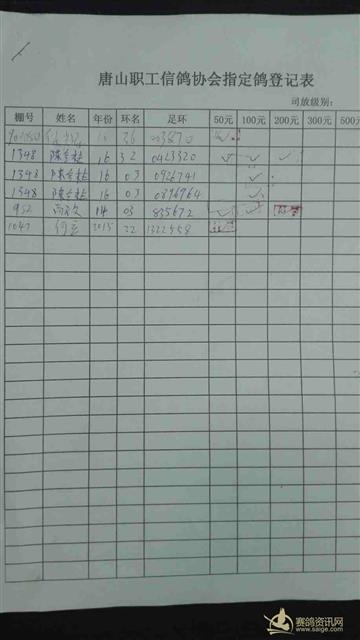 唐山职工信鸽协会指定鸽登记表
司放级别：
棚号 姓名 年份 环名 足环 50元 100元 200元 300元 500元
16 36 003870 ✓
1348 陈全柱 16 32 0423320 ✓ ✓ ✓
1348 陈全柱 16 03 0926741 ✓
1348 陈全柱 16 03 0896964 ✓
952 高欣 14 03 835672 ✓ ✓
1047 何立 2015 22 1322558
赛鸽资讯网
www.saige.com